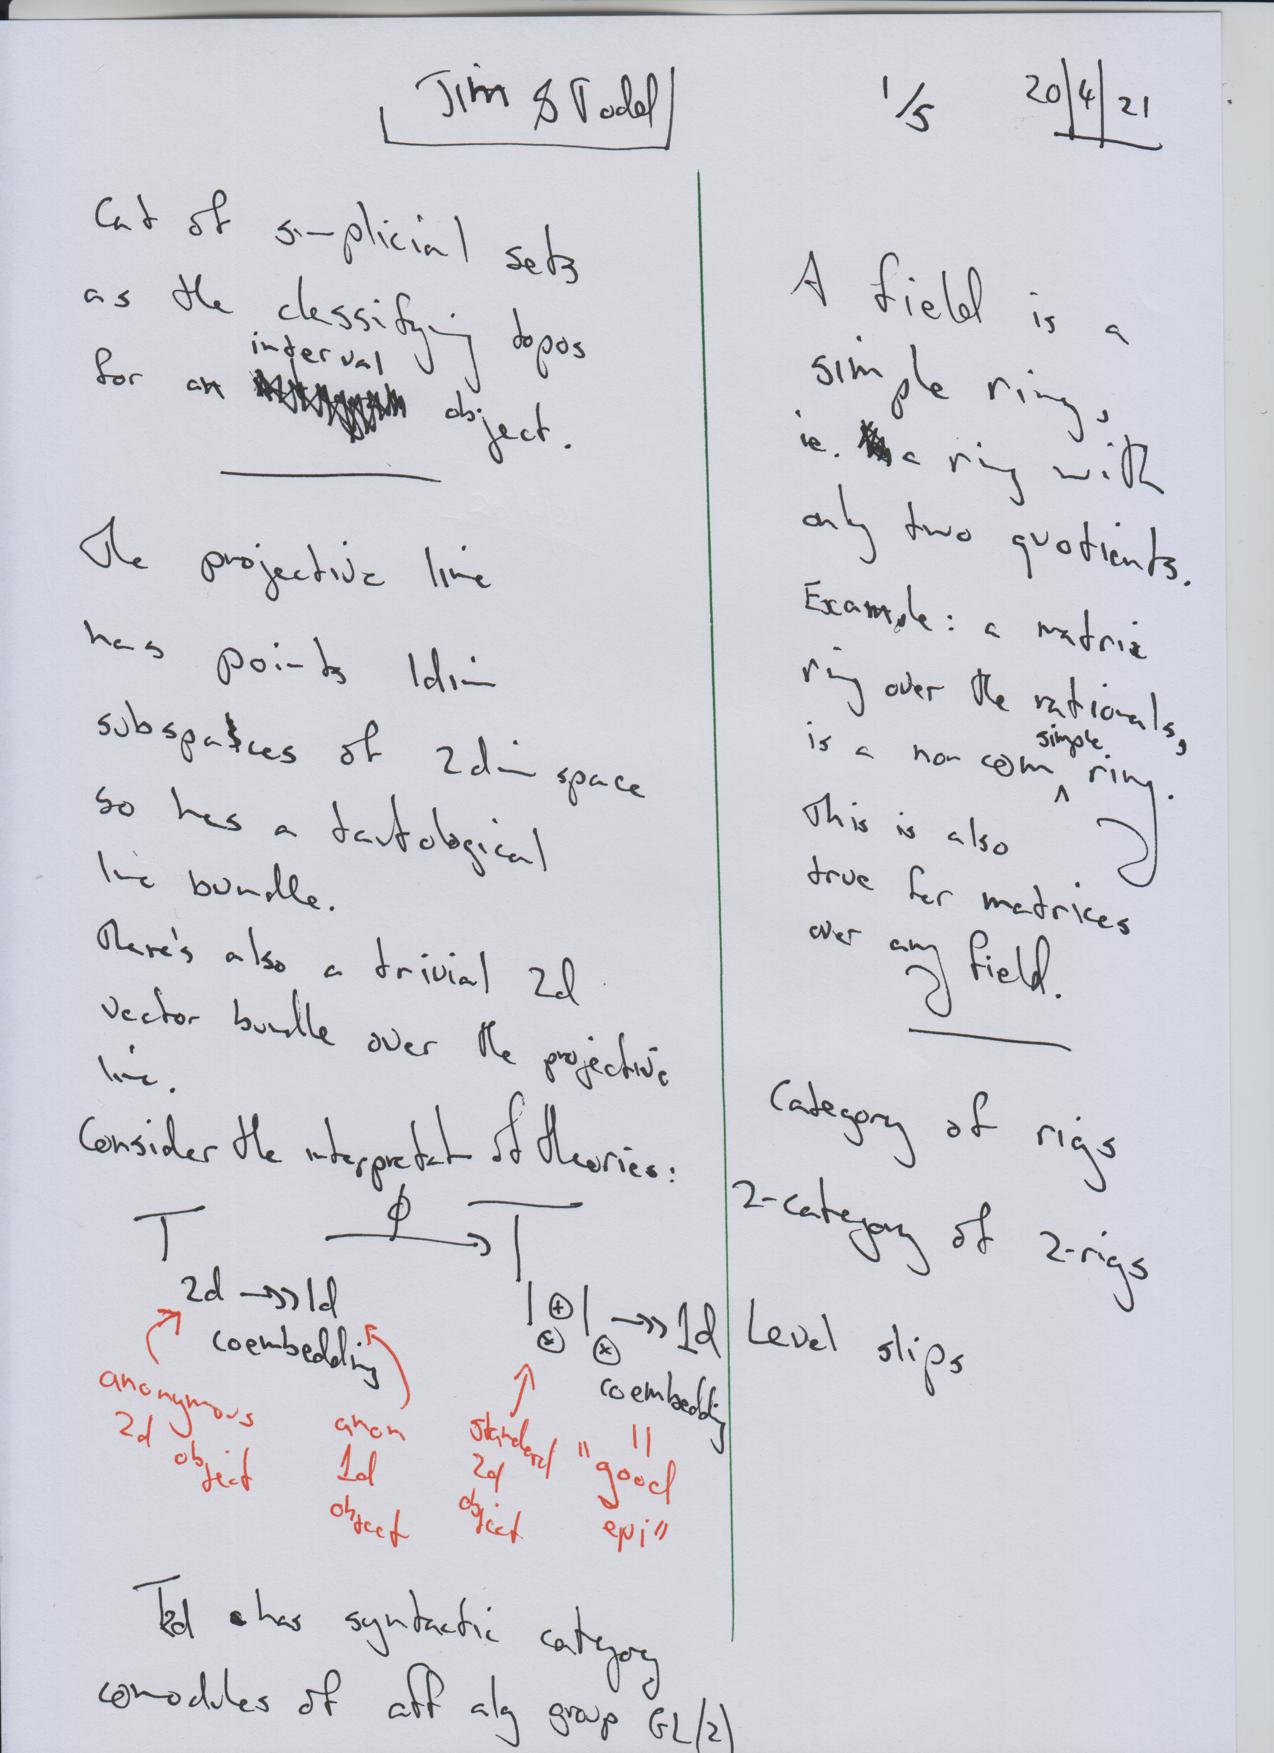 Jim & Todd
1/5
20/4/21
Cat of simplicial sets
as the classifying topos
interval
for an object.
The projective line
has points 1dim
subspaces of 2dim space
so has a tautological
line bundle.
There's also a trivial 2d
vector bundle over the projective
line.
Consider the interpretat of theories:
T ϕ T
2d ->> 1d
coembedding
1 ⊕ 1 ->> 1d
⊗ ⊗
coembedding
anonymous
2d object
anon
1d
object
standard
2d
object
=
"good
epi"
T2d has syntactic category
comodules of aff alg group GL(2)
A field is a
simple ring,
ie. a ring with
only two quotients.
Example: a matrix
ring over the rationals,
simple
is a non com ^ ring.
This is also
true for matrices
over any field.
Category of rigs
2-category of 2-rigs
Level slips